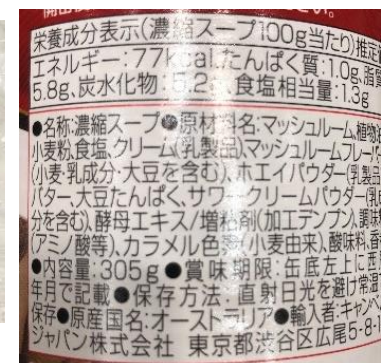 栄養成分表示(濃縮スープ100g当たり)推定
エネルギー:77kcal、たんぱく質:1.0g、脂質
5.8g、炭水化物:5.2g、食塩相当量:1.3g
●名称:濃縮スープ●原材料名:マッシュルーム、植物
小麦粉、食塩、クリーム(乳製品)、マッシュルームフレー
(小麦・乳成分・大豆を含む)、ホエイパウダー(乳製品
バター、大豆たんぱく、サワークリームパウダー(乳
分を含む)、酵母エキス/増粘剤(加工デンプン)、調味
(アミノ酸等)、カラメル色素(小麦由来)、酸味料、香
●内容量:305g●賞味期限:缶底左上に西
年月で記載●保存方法:直射日光を避け常温
保存●原産国名:オーストラリア●輸入者:キャンベ
ジャパン株式会社 東京都渋谷区広尾5-8-